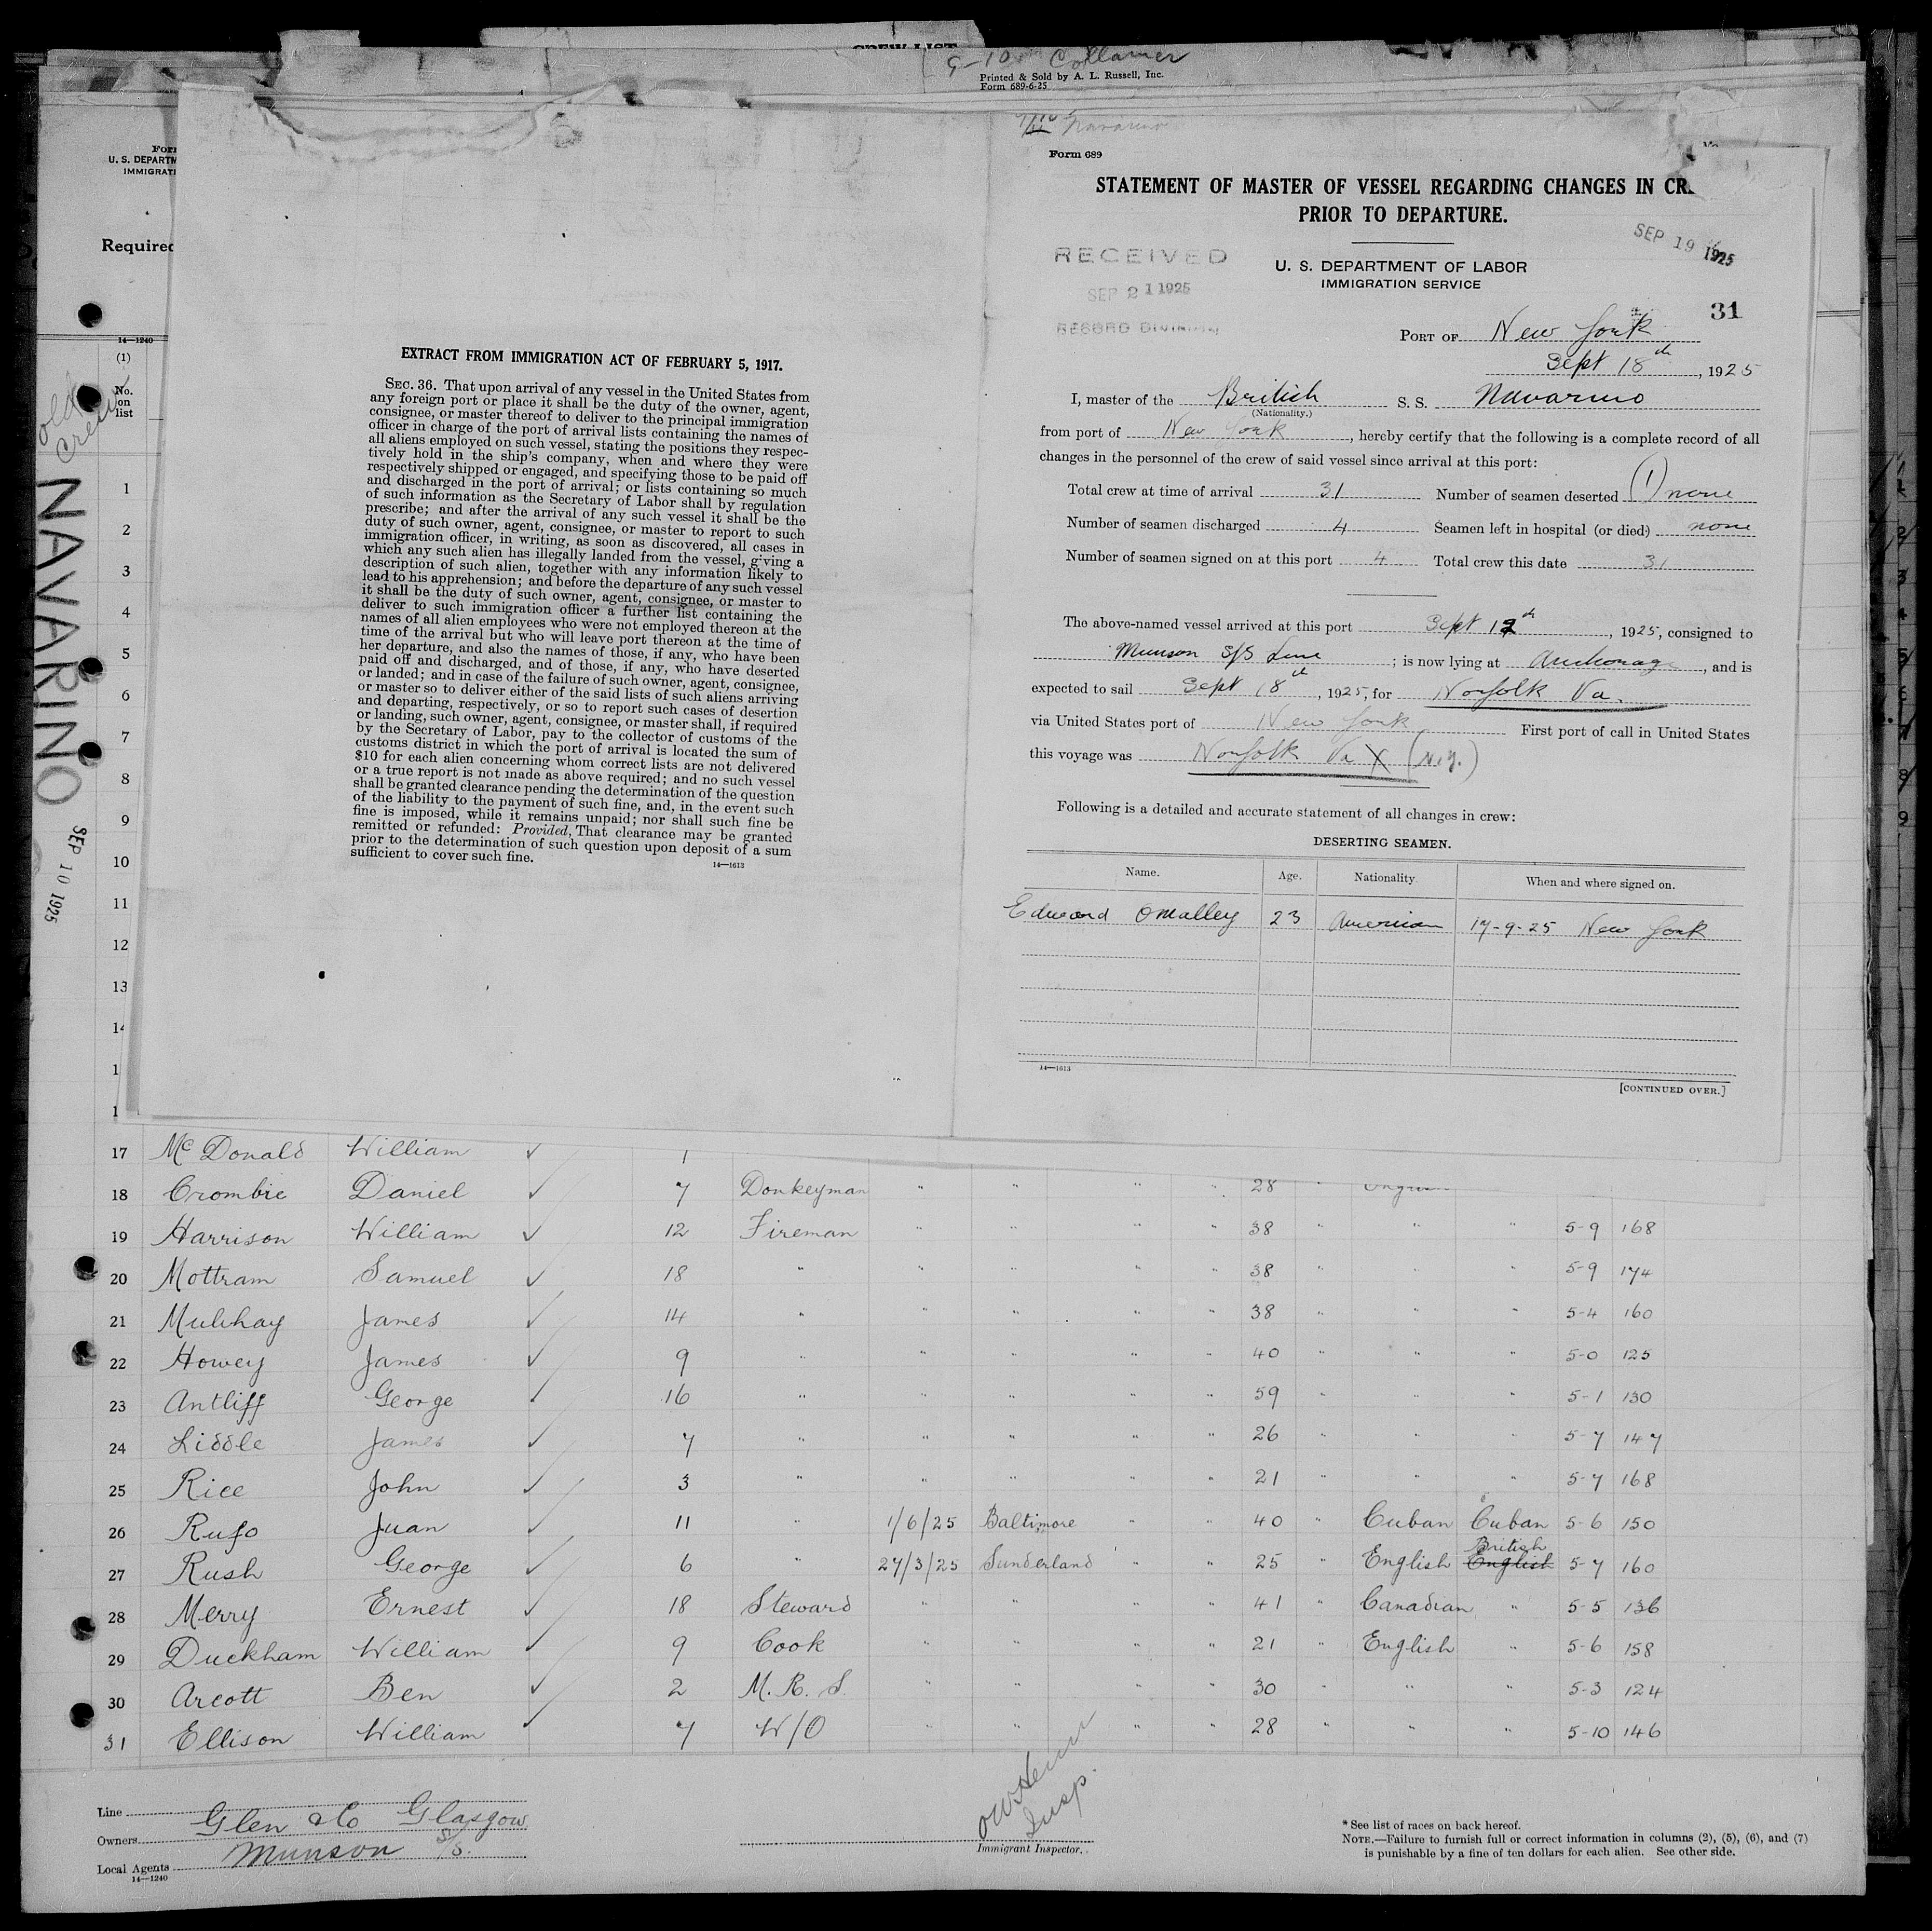 CREW LIST
9-10 Collamer
Printed & Sold by A. L. Russell, Inc.
Form 689-6-25
U. S. DEPARTM
IMMIGRATI
Required
14—1240
(1)
No.
on
list
old
crew
NAVARINO
SEP 10 1925
1
2
3
4
5
6
7
8
9
10
11
12
13
EXTRACT FROM IMMIGRATION ACT OF FEBRUARY 5, 1917.
SEC. 36. That upon arrival of any vessel in the United States from
any foreign port or place it shall be the duty of the owner, agent,
consignee, or master thereof to deliver to the principal immigration
officer in charge of the port of arrival lists containing the names of
all aliens employed on such vessel, stating the positions they respec-
tively hold in the ship's company, when and where they were
respectively shipped or engaged, and specifying those to be paid off
and discharged in the port of arrival; or lists containing so much
of such information as the Secretary of Labor shall by regulation
prescribe; and after the arrival of any such vessel it shall be the
duty of such owner, agent, consignee, or master to report to such
immigration officer, in writing, as soon as discovered, all cases in
which any such alien has illegally landed from the vessel, giving a
description of such alien, together with any information likely to
lead to his apprehension; and before the departure of any such vessel
it shall be the duty of such owner, agent, consignee, or master to
deliver to such immigration officer a further list containing the
names of all alien employees who were not employed thereon at the
time of the arrival but who will leave port thereon at the time of
her departure, and also the names of those, if any, who have been
paid off and discharged, and of those, if any, who have deserted
or landed; and in case of the failure of such owner, agent, consignee,
or master so to deliver either of the said lists of such aliens arriving
and departing, respectively, or so to report such cases of desertion
or landing, such owner, agent, consignee, or master shall, if required
by the Secretary of Labor, pay to the collector of customs of the
customs district in which the port of arrival is located the sum of
$10 for each alien concerning whom correct lists are not delivered
or a true report is not made as above required; and no such vessel
shall be granted clearance pending the determination of the question
of the liability to the payment of such fine, and, in the event such
fine is imposed, while it remains unpaid; nor shall such fine be
remitted or refunded: Provided, That clearance may be granted
prior to the determination of such question upon deposit of a sum
sufficient to cover such fine.
14—1613
Navarino
Form 689
STATEMENT OF MASTER OF VESSEL REGARDING CHANGES IN CR
PRIOR TO DEPARTURE.
SEP 19 1925
RECEIVED
SEP 21 1925
RECORD DIVISION
U. S. DEPARTMENT OF LABOR
IMMIGRATION SERVICE
31
PORT OF New York
Sept 18th, 1925
I, master of the British S. S. Navarino
(Nationality.)
from port of New York, hereby certify that the following is a complete record of all
changes in the personnel of the crew of said vessel since arrival at this port:
Total crew at time of arrival 31 Number of seamen deserted (1) none
Number of seamen discharged 4 Seamen left in hospital (or died) none
Number of seamen signed on at this port 4 Total crew this date 31
The above-named vessel arrived at this port Sept 12th, 1925, consigned to
Munson S/S Line; is now lying at Anchorage, and is
expected to sail Sept 18th, 1925, for Norfolk Va.
via United States port of New York First port of call in United States
this voyage was Norfolk Va X (N.Y.)
Following is a detailed and accurate statement of all changes in crew:
DESERTING SEAMEN.
Name. Age. Nationality When and where signed on.
Edward OMalley 23 American 17-9-25 New York
14—1613
[CONTINUED OVER.]
17 McDonald William ✓ 1
18 Crombie Daniel ✓ 7 Donkeyman " " " " 28 "
19 Harrison William ✓ 12 Fireman " " " " 38 " " " 5-9 168
20 Mottram Samuel ✓ 18 " " " " " 38 " " " 5-9 174
21 Mulchay James ✓ 14 " " " " " 38 " " " 5-4 160
22 Howey James ✓ 9 " " " " " 40 " " " 5-0 125
23 Antliff George ✓ 16 " " " " " 59 " " " 5-1 130
24 Liddle James ✓ 7 " " " " " 26 " " " 5-7 147
25 Rice John ✓ 3 " " " " " 21 " " " 5-7 168
26 Rufo Juan ✓ 11 " 1/6/25 Baltimore " " 40 " Cuban Cuban 5-6 150
27 Rush George ✓ 6 " 27/3/25 Sunderland " " 25 " English British English 5-7 160
28 Merry Ernest ✓ 18 Steward " " " " 41 " Canadian " 5-5 136
29 Duckham William ✓ 9 Cook " " " " 21 " English " 5-6 158
30 Arcott Ben ✓ 2 M. R. S. " " " " 30 " " " 5-3 124
31 Ellison William ✓ 7 W/O " " " " 28 " " " 5-10 146
Line
Owners Glen & Co Glasgow
Local Agents Munson S/S.
14—1240
Insp.
Immigrant Inspector.
* See list of races on back hereof.
NOTE.—Failure to furnish full or correct information in columns (2), (5), (6), and (7)
is punishable by a fine of ten dollars for each alien. See other side.